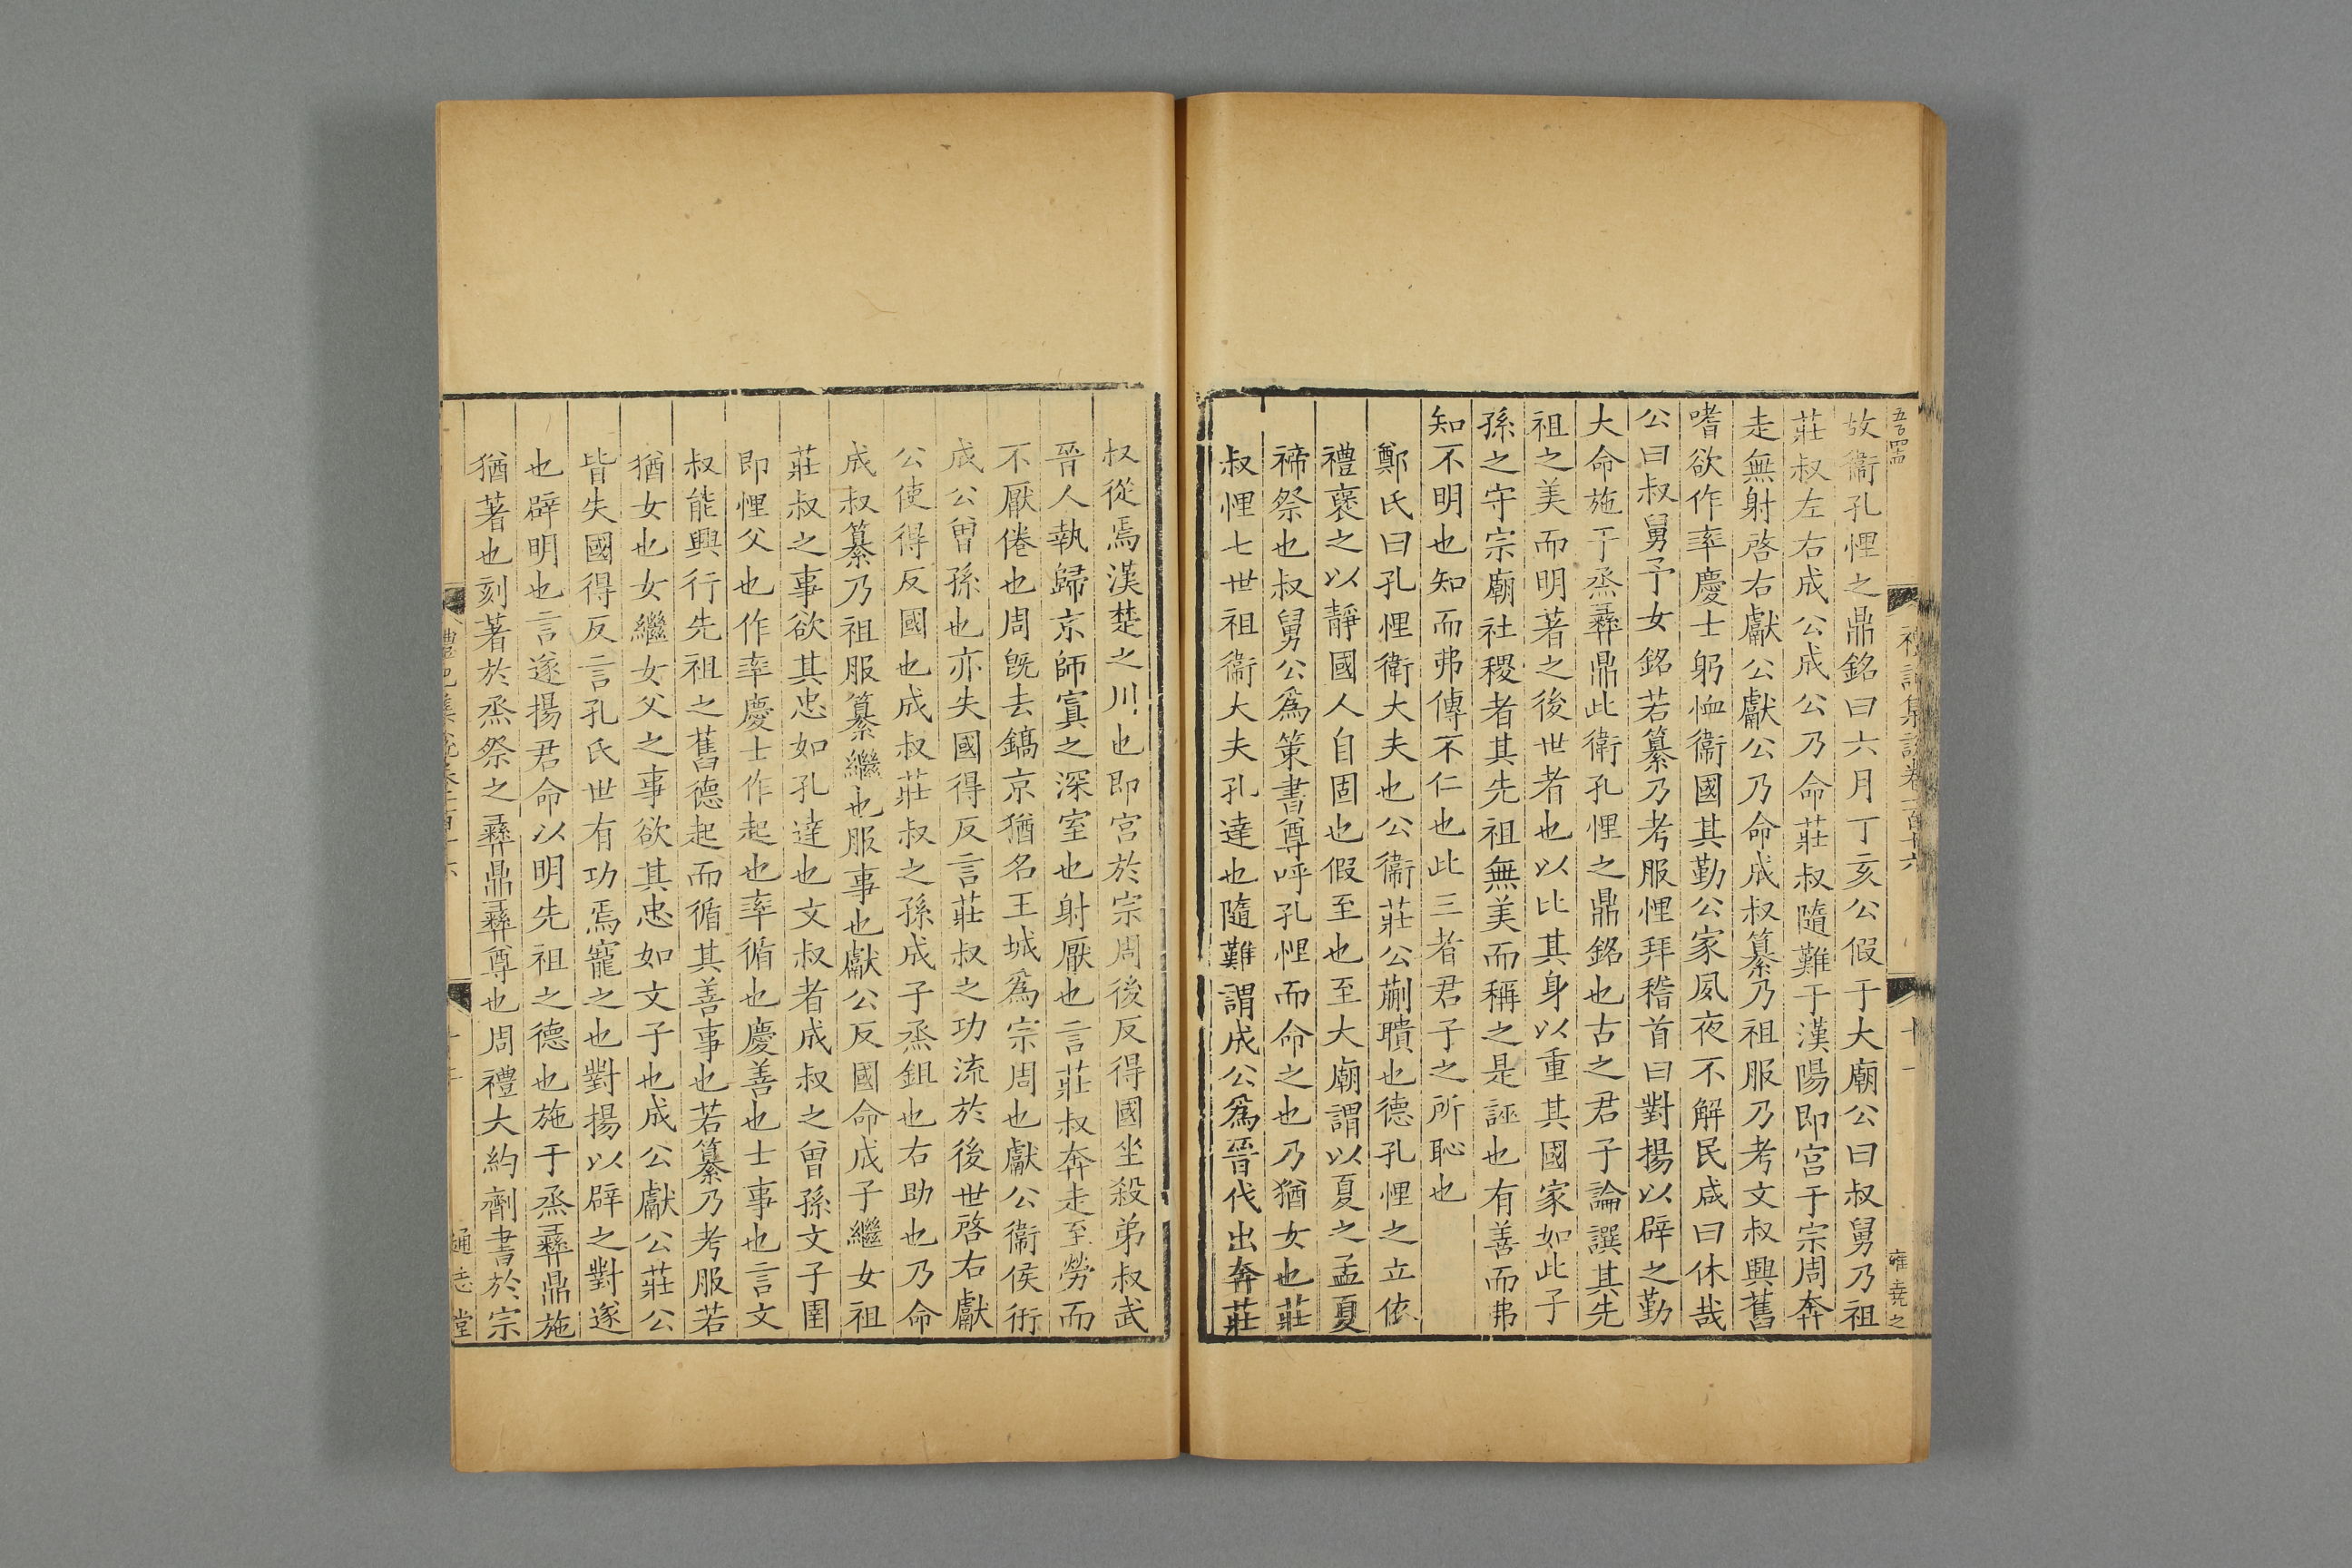 故衞孔悝之鼎銘曰六月丁亥公假于大廟公曰叔舅乃祖
莊叔左右成公成公乃命莊叔隨難于漢陽即宮于宗周奔
走無射啓右獻公獻公乃命成叔纂乃祖服乃考文叔興舊
嗜欲作率慶士躬恤衞國其勤公家夙夜不解民咸曰休哉
公曰叔舅予女銘若纂乃考服悝拜稽首曰對揚以辟之勤
大命施于烝彝鼎此衛孔悝之鼎銘也古之君子論譔其先
祖之美而明著之後世者也以比其身以重其國家如此子
孫之守宗廟社稷者其先祖無美而稱之是誣也有善而弗
知不明也知而弗傳不仁也此三者君子之所恥也
鄭氏曰孔悝衛大夫也公衞莊公蒯聵也德孔悝之立依
禮襃之以靜國人自固也假至也至大廟謂以夏之孟夏
禘祭也叔舅公爲策書尊呼孔悝而命之也乃猶女也莊
叔悝七世祖衞大夫孔達也隨難謂成公爲晉伐出奔莊
叔從焉漢楚之川也即宮於宗周後反得國坐殺弟叔武
晉人執歸京師寘之深室也射厭也言莊叔奔走至勞而
不厭倦也周旣去鎬京猶名王城爲宗周也獻公衞侯衎
成公曾孫也亦失國得反言莊叔之功流於後世啓右獻
公使得反國也成叔莊叔之孫成子烝鉏也右助也乃命
成叔纂乃祖服纂繼也服事也獻公反國命成子繼女祖
莊叔之事欲其忠如孔達也文叔者成叔之曾孫文子圉
即悝父也作率慶士作起也率循也慶善也士事也言文
叔能興行先祖之舊德起而循其善事也若纂乃考服若
猶女也女繼女父之事欲其忠如文子也成公獻公莊公
皆失國得反言孔氏世有功焉寵之也對揚以辟之對遂
也辟明也言遂揚君命以明先祖之德也施于烝彝鼎施
猶著也刻著於烝祭之彝鼎彝尊也周禮大約劑書於宗
通志堂